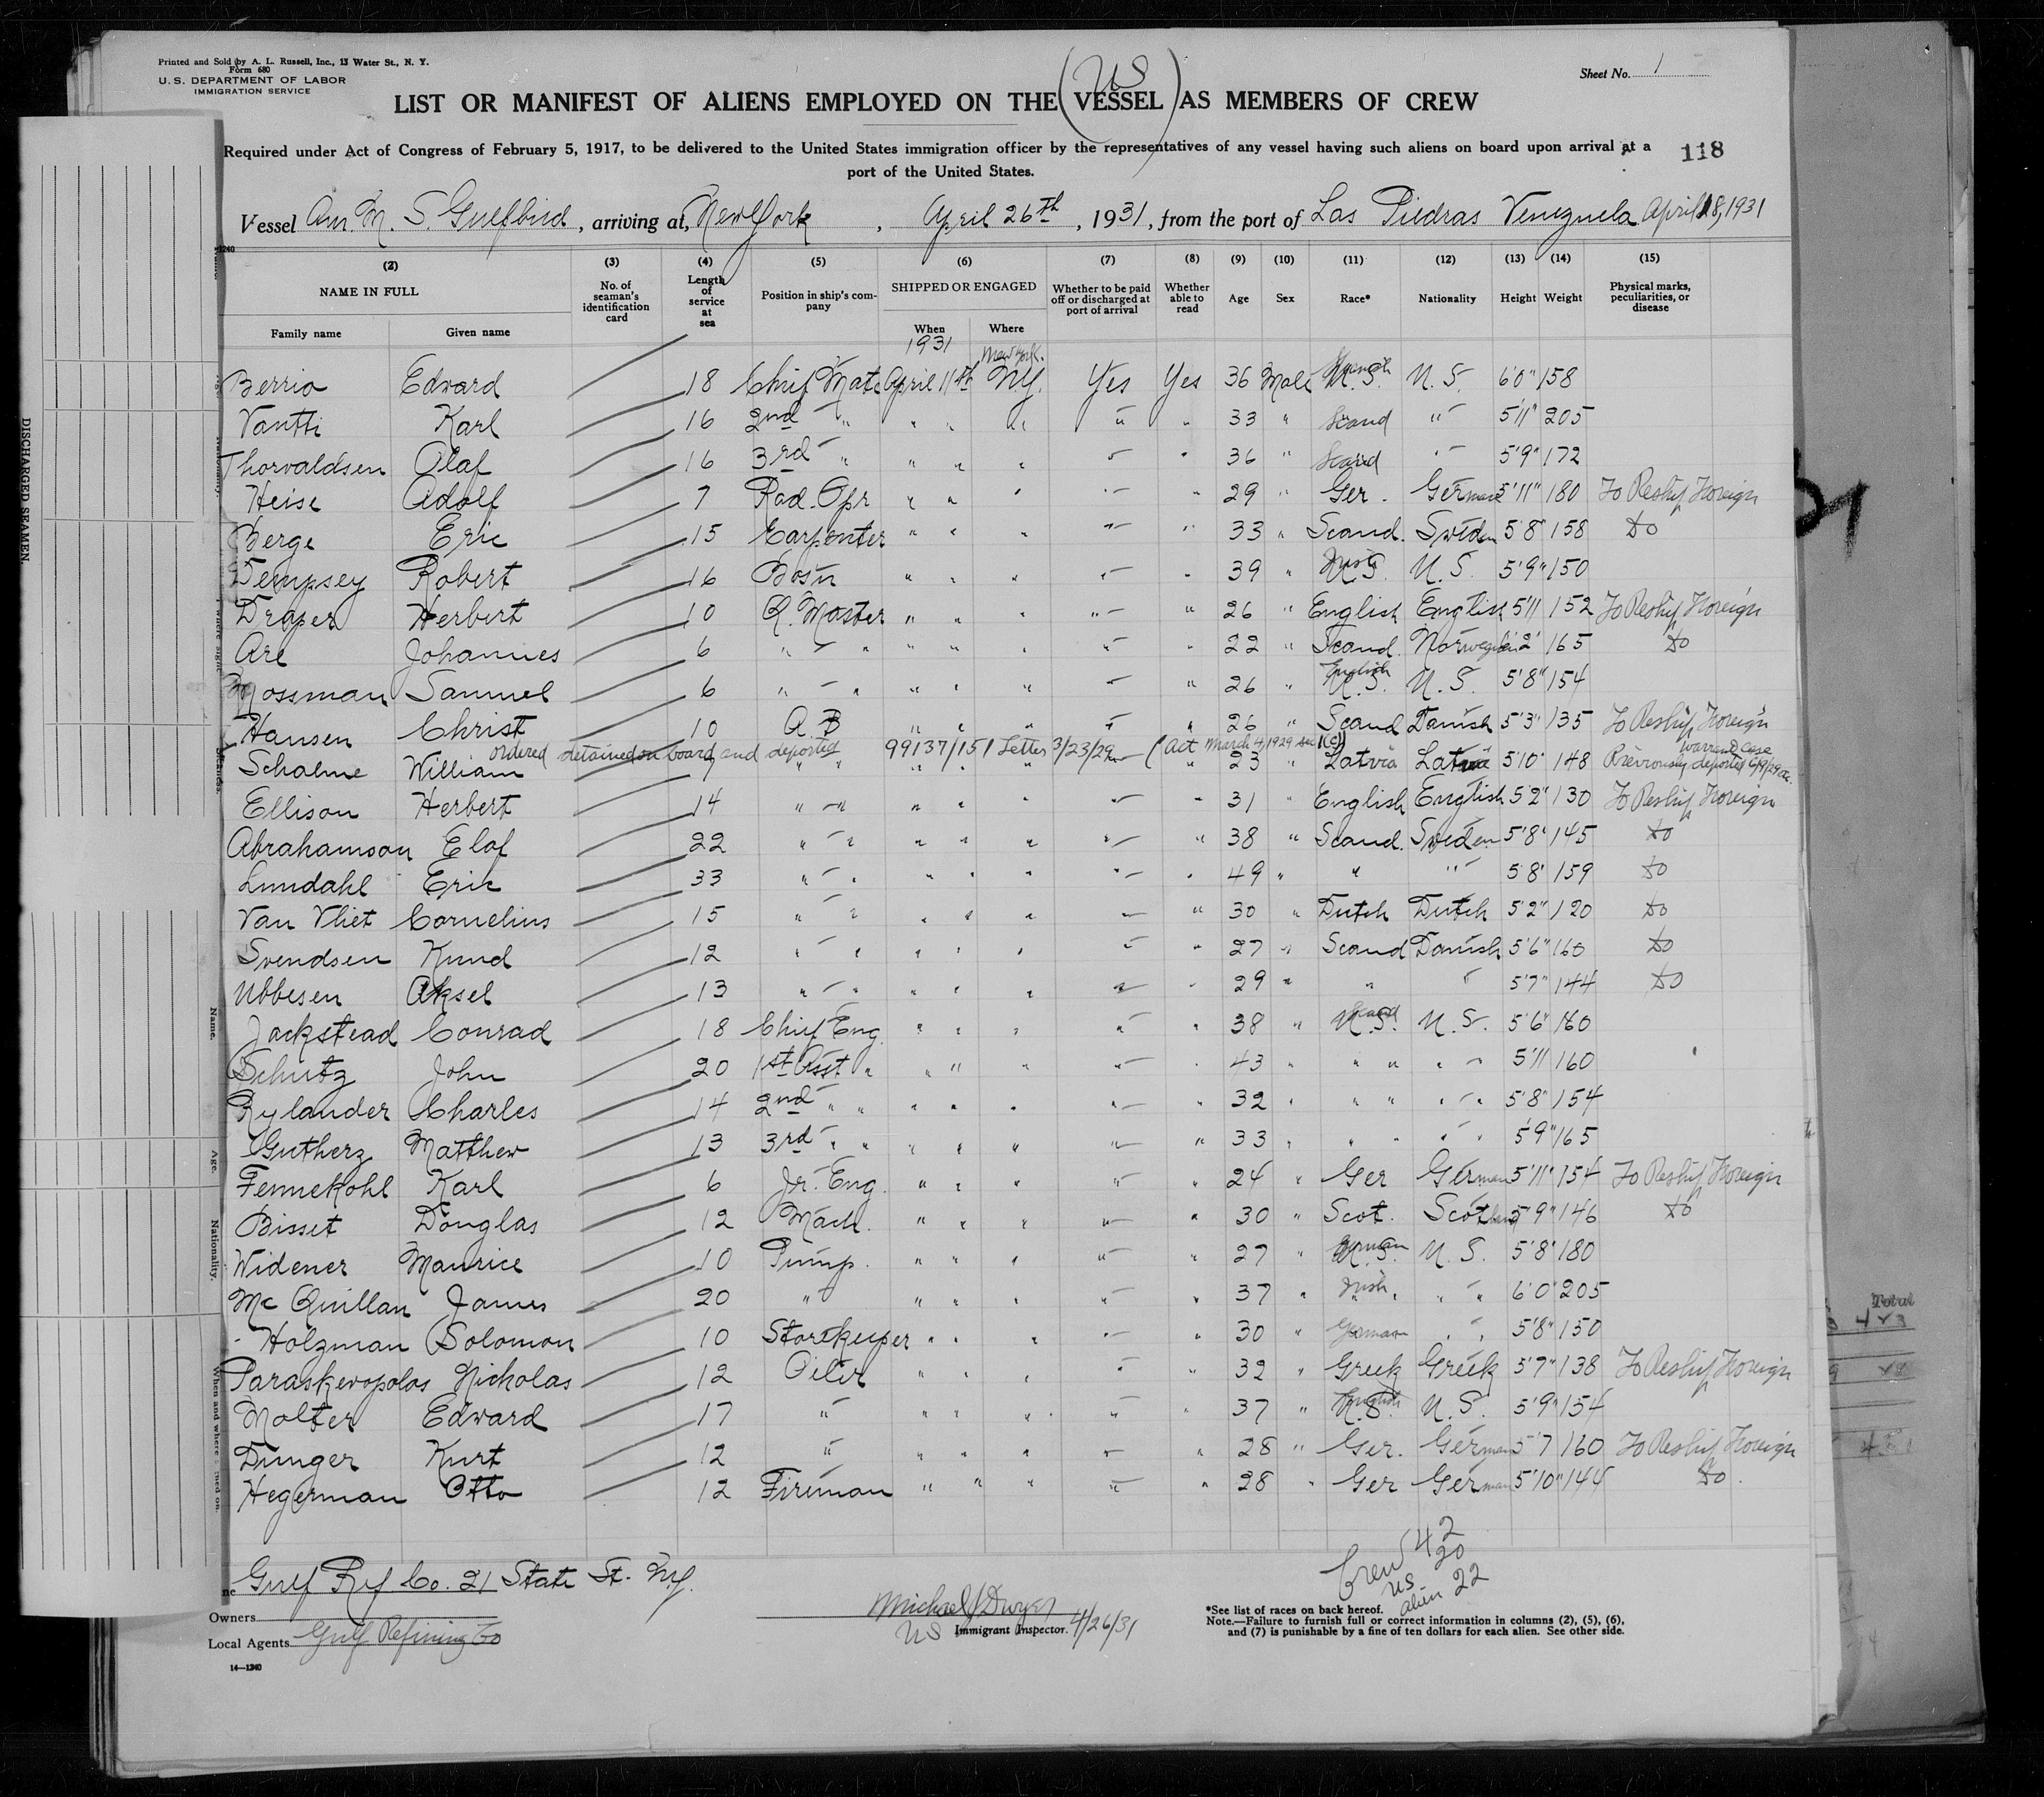 Printed and Sold by A. L. Russell, Inc., 13 Water St., N. Y.
Form 680
U. S. DEPARTMENT OF LABOR
IMMIGRATION SERVICE
Sheet No. 1
US
LIST OR MANIFEST OF ALIENS EMPLOYED ON THE (VESSEL) AS MEMBERS OF CREW
Required under Act of Congress of February 5, 1917, to be delivered to the United States immigration officer by the representatives of any vessel having such aliens on board upon arrival at a
port of the United States.
118
Vessel Am. M. S. Gulfbird, arriving at, New York, April 26th, 1931, from the port of Las Piedras Venezuela April 18, 1931
(2) (3) (4) (5) (6) (7) (8) (9) (10) (11) (12) (13) (14) (15)
NAME IN FULL No. of seaman's identification card Length of service at sea Position in ship's company SHIPPED OR ENGAGED Whether to be paid off or discharged at port of arrival Whether able to read Age Sex Race* Nationality Height Weight Physical marks, peculiarities, or disease
Family name Given name When Where
1931 New York.
Berrio Edward 18 Chief Mate April 11th NY. Yes Yes 36 Male U.S. U.S. 6'0" 158
Vantti Karl 16 2nd " " " " " " 33 " Scand " 5'11" 205
Thorvaldsen Olaf 16 3rd " " " " " " 36 " Scand " 5'9" 172
Heise Adolf 7 Rad. Opr " " " " " 29 " Ger. German 5'11" 180 To Reship Foreign
Berge Eric 15 Carpenter " " " " " 33 " Scand. Sweden 5'8" 158 Do
Dempsey Robert 16 Bos'n " " " " " 39 " Irish U.S. U.S. 5'9" 150
Draper Herbert 10 Q. Master " " " " " 26 " English English 5'11 152 To Reship Foreign
Are Johannes 6 " " " " " " " 22 " Scand. Norwegian 165 Do
Mossman Samuel 6 " " " " " " " 26 " English U.S. U.S. 5'8" 154
Hansen Christ 10 A.B " " " " " 26 " Scand Danish 5'3" 135 To Reship Foreign
ordered detained on board and deported 99137/151 Letter 3/23/29 (Act March 4, 1929 sec 1(c)) warrant case
Schalme William " " " " " " 23 " Latvia Latvia 5'10" 148 Previously deported
Ellison Herbert 14 " " " " " " " 31 " English English 5'2" 130 To Reship Foreign
Abrahamson Elof 22 " " " " " " " 38 " Scand. Sweden 5'8" 145 Do
Lundahl Eric 33 " " " " " " " 49 " " " 5'8" 159 Do
Van Vliet Cornelius 15 " " " " " " " 30 " Dutch Dutch 5'2" 120 Do
Svendsen Knud 12 " " " " " " " 27 " Scand Danish 5'6" 160 Do
Ubbesen Aksel 13 " " " " " " " 29 " " " 5'7" 144 Do
Jackstead Conrad 18 Chief Eng. " " " " " 38 " Scand U.S. U.S. 5'6" 160
Schutz John 20 1st Asst " " " " " " 43 " " " " " 5'11 160
Rylander Charles 14 2nd " " " " " " " 32 " " " " " 5'8" 154
Gutherz Matthew 13 3rd " " " " " " " 33 " " " " " 5'9" 165
Fennekohl Karl 6 Jr. Eng. " " " " " 24 " Ger German 5'11" 154 To Reship Foreign
Bisset Douglas 12 Mach. " " " " " 30 " Scot. Scotland 5'9" 146 Do
Widener Maurice 10 Pump. " " " " " 27 " German U.S. U.S. 5'8" 180
Mc Quillan James 20 " " " " " " 37 " Irish " " 6'0" 205
Holzman Solomon 10 Storekeeper " " " " " 30 " German " " 5'8" 150
Paraskevopolos Nicholas 12 Oiler " " " " " 32 " Greek Greek 5'7" 138 To Reship Foreign
Molter Edward 17 " " " " " " 37 " English U.S. U.S. 5'9" 154
Dunger Kurt 12 " " " " " " 28 " Ger. German 5'7 160 To Reship Foreign
Hegerman Otto 12 Fireman " " " " " 28 " Ger German 5'10" 144 Do.
Crew 42
US 20
alien 22
Gulf Ref Co. 21 State St. N.Y.
Owners
Local Agents Gulf Refining Co
Michael J Dwyer 4/26/31
US Immigrant Inspector.
*See list of races on back hereof.
Note.—Failure to furnish full or correct information in columns (2), (5), (6),
and (7) is punishable by a fine of ten dollars for each alien. See other side.
14—1240
DISCHARGED SEAMEN.
Name.
Age.
Nationality.
Total